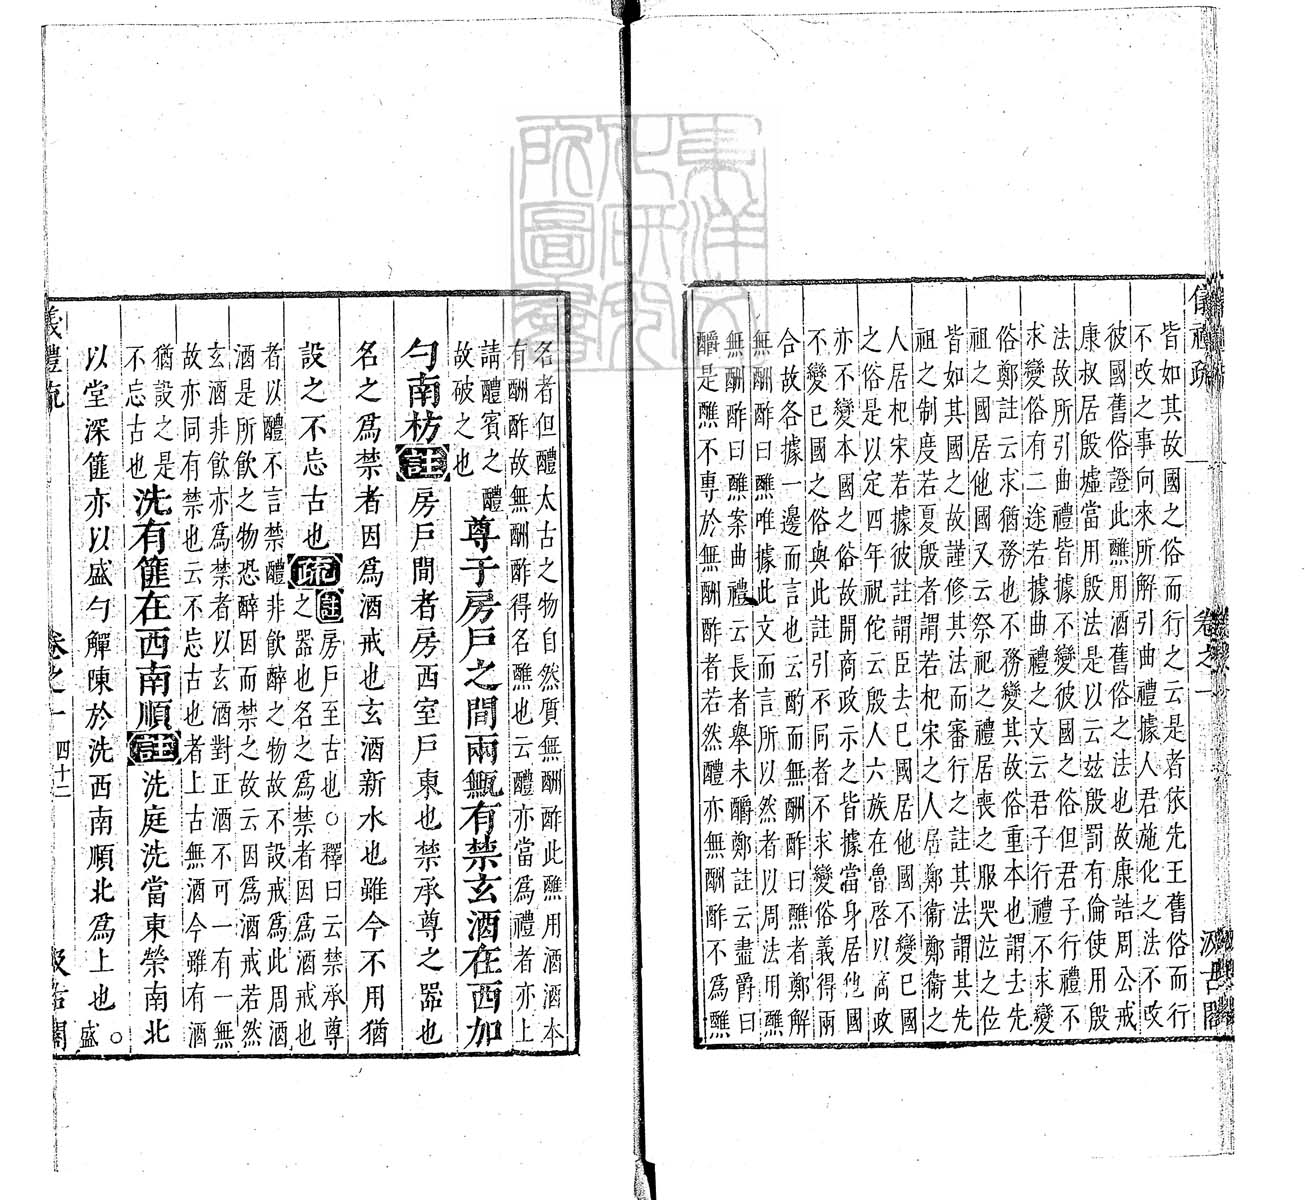 儀禮疏　卷之一　汲古閣
皆如其故國之俗而行之云是者依先王舊俗而行
不改之事向來所解引曲禮據人君施化之法不改
彼國舊俗證此醮用酒舊俗之法也故康誥周公戒
康叔居殷墟當用殷法是以云茲殷罰有倫使用殷
法故所引曲禮皆據不變彼國之俗但君子行禮不
求變俗有二途若據曲禮之文云君子行禮不求變
俗鄭註云求猶務也不務變其故俗重本也謂去先
祖之國居他國又云祭祀之禮居喪之服哭泣之位
皆如其國之故謹修其法而審行之註其法謂其先
祖之制度若夏殷者謂若杞宋之人居鄭衛鄭衛之
人居杞宋若據彼註謂臣去已國居他國不變已國
之俗是以定四年祝佗云殷人六族在魯啓以商政
亦不變本國之俗故開商政示之皆據當身居他國
不變已國之俗與此註引不同者不求變俗義得兩
合故各據一邊而言也云酌而無酬酢曰醮者鄭解
無酬酢曰醮唯據此文而言所以然者以周法用醮
無酬酢曰醮案曲禮云長者舉未釂鄭註云盡爵曰
釂是醮不專於無酬酢者若然醴亦無酬酢不爲醮
名者但醴太古之物自然質無酬酢此醮用酒酒本
有酬酢故無酬酢得名醮也云醴亦當爲禮者亦上
請醴賓之醴
故破之也
尊于房戶之間兩甒有禁玄酒在西加
勺南枋註房戶間者房西室戶東也禁承尊之器也
名之爲禁者因爲酒戒也玄酒新水也雖今不用猶
設之不忘古也疏
註房戶至古也○釋曰云禁承尊
之器也名之爲禁者因爲酒戒也
者以醴不言禁醴非飲醉之物故不設戒爲此周酒
酒是所飲之物恐醉因而禁之故云因爲酒戒若然
玄酒非飲亦爲禁者以玄酒對正酒不可一有一無
故亦同有禁也云不忘古也者上古無酒今雖有酒
猶設之是
不忘古也
洗有篚在西南順註洗庭洗當東榮南北
以堂深篚亦以盛勺觶陳於洗西南順北爲上也○盛
儀禮疏　卷之一　四十二　汲古閣
東洋文化研究所圖書